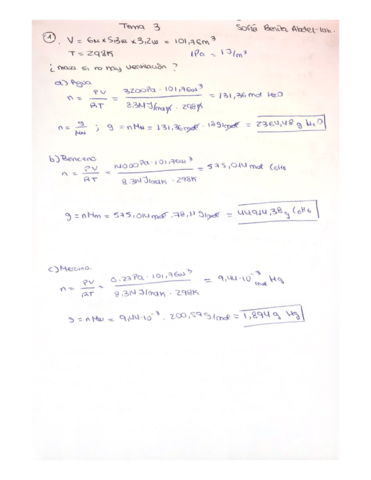 Tema 3
① V = 6m x 5,3m x 3,2m = 101,76m³
T = 298K 1Pa = 1J/m³
¿masa si no hay ventilación?
a) Agua
n = PV/RT = 3200Pa · 101,76m³ / 8.314J/molK · 298K = 131,36 mol H₂O
n = g/Mm ; g = nMm = 131,36mol · 18g/mol = 2364,48 g H₂O
b) Benceno
n = PV/RT = 14000Pa · 101,76m³ / 8.314J/molK · 298K = 575,014 mol C₆H₆
g = nMm = 575,014mol · 78,11g/mol = 44914,38g C₆H₆
c) Mercurio
n = PV/RT = 0.23Pa · 101,76m³ / 8.314J/molK · 298K = 9,44·10⁻³ mol Hg
g = nMm = 9,44·10⁻³ · 200,59g/mol = 1,894g Hg